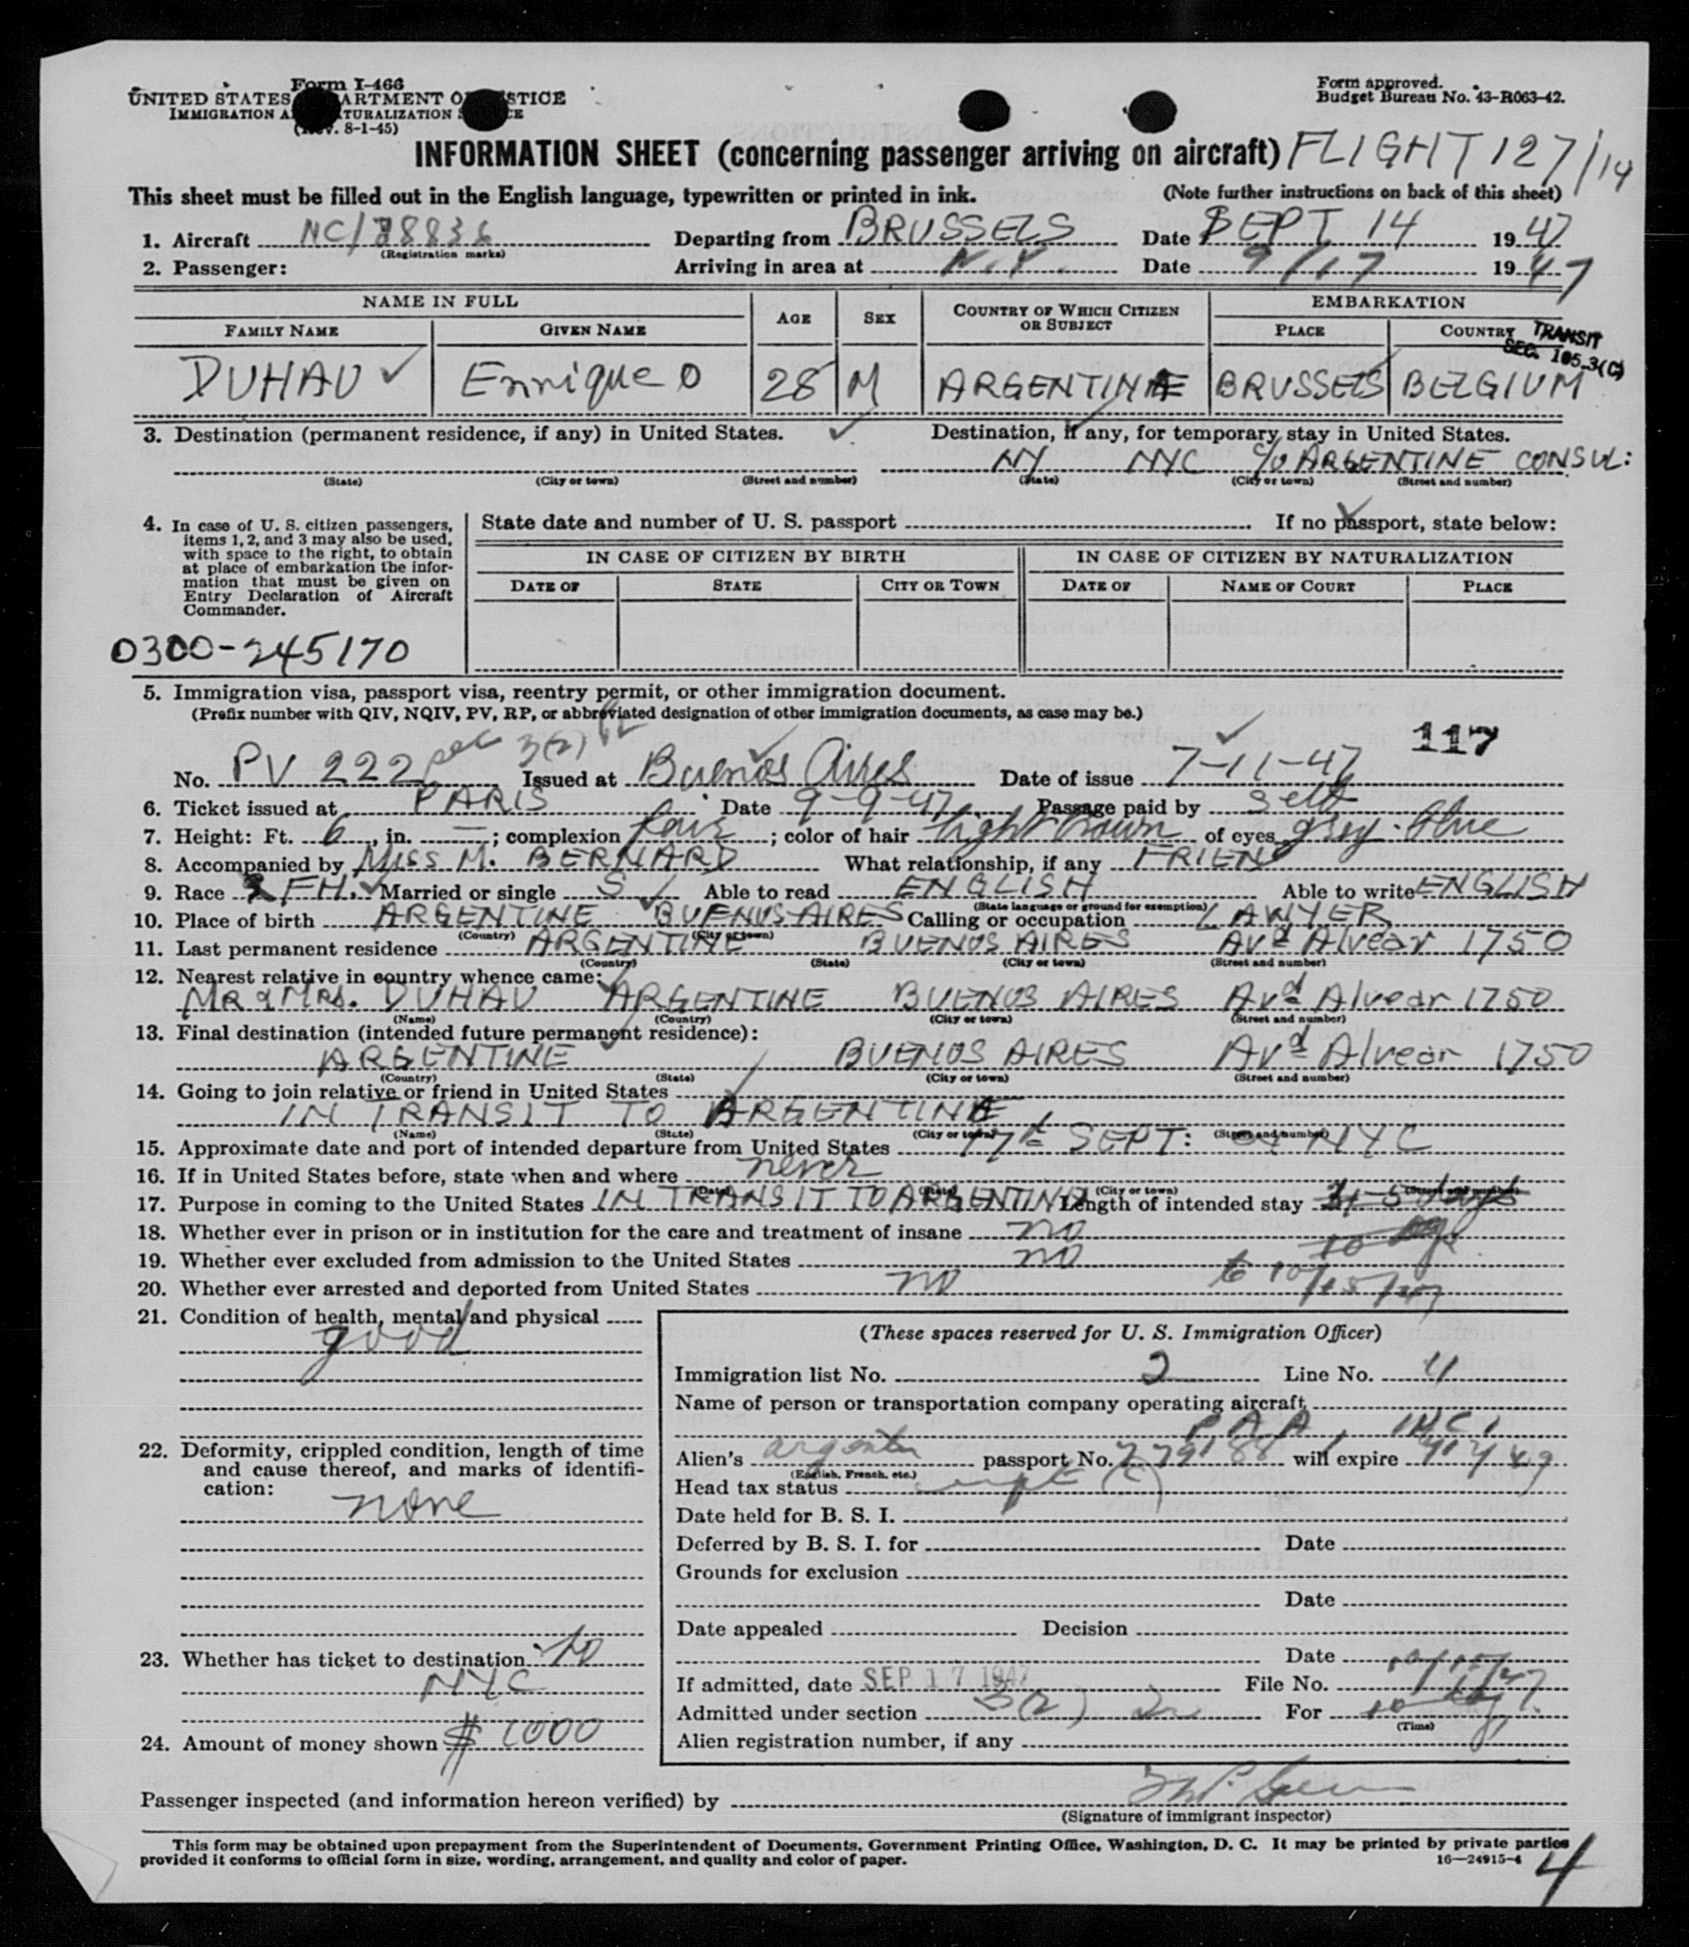 Form I-466
UNITED STATES DEPARTMENT OF JUSTICE
IMMIGRATION AND NATURALIZATION SERVICE
(Rev. 8-1-45)
Form approved.
Budget Bureau No. 43-R063-42.
INFORMATION SHEET (concerning passenger arriving on aircraft) FLIGHT 127/14
This sheet must be filled out in the English language, typewritten or printed in ink. (Note further instructions on back of this sheet)
1. Aircraft NC/88836 Departing from BRUSSELS Date SEPT 14 1947
(Registration marks)
2. Passenger: Arriving in area at N.Y. Date 9/17 1947
NAME IN FULL AGE SEX COUNTRY OF WHICH CITIZEN OR SUBJECT EMBARKATION
FAMILY NAME GIVEN NAME PLACE COUNTRY
TRANSIT
SEC. 105.3(C)
DUHAU Enrique O 28 M ARGENTINE BRUSSELS BELGIUM
3. Destination (permanent residence, if any) in United States. Destination, if any, for temporary stay in United States.
NY NYC c/o ARGENTINE CONSUL:
(State) (City or town) (Street and number) (State) (City or town) (Street and number)
4. In case of U. S. citizen passengers, items 1, 2, and 3 may also be used, with space to the right, to obtain at place of embarkation the information that must be given on Entry Declaration of Aircraft Commander.
State date and number of U. S. passport If no passport, state below:
IN CASE OF CITIZEN BY BIRTH IN CASE OF CITIZEN BY NATURALIZATION
DATE OF STATE CITY OR TOWN DATE OF NAME OF COURT PLACE
0300-245170
5. Immigration visa, passport visa, reentry permit, or other immigration document.
(Prefix number with QIV, NQIV, PV, RP, or abbreviated designation of other immigration documents, as case may be.)
117
No. PV 222 sec 3(2) Issued at Buenos Aires Date of issue 7-11-47
6. Ticket issued at PARIS Date 9-9-47 Passage paid by self
7. Height: Ft. 6, in. —; complexion fair; color of hair light brown of eyes grey-blue
8. Accompanied by MISS M. BERNARD What relationship, if any FRIEND
9. Race FH. Married or single S Able to read ENGLISH Able to write ENGLISH
(State language or ground for exemption)
10. Place of birth ARGENTINE BUENOS AIRES Calling or occupation LAWYER
(Country) (City or town)
11. Last permanent residence ARGENTINE BUENOS AIRES Avd Alvear 1750
(Country) (State) (City or town) (Street and number)
12. Nearest relative in country whence came:
MR & MRS. DUHAU ARGENTINE BUENOS AIRES Avd Alvear 1750
(Name) (Country) (City or town) (Street and number)
13. Final destination (intended future permanent residence):
ARGENTINE BUENOS AIRES Avd Alvear 1750
(Country) (State) (City or town) (Street and number)
14. Going to join relative or friend in United States
IN TRANSIT TO ARGENTINE
(Name) (State) (City or town) (Street and number)
15. Approximate date and port of intended departure from United States 17th SEPT: NYC
16. If in United States before, state when and where never
(Date) (State) (City or town) (Street and number)
17. Purpose in coming to the United States IN TRANSIT TO ARGENTINA Length of intended stay 3-5 days
18. Whether ever in prison or in institution for the care and treatment of insane no
19. Whether ever excluded from admission to the United States no
20. Whether ever arrested and deported from United States no to 10/15/47
21. Condition of health, mental and physical
good
(These spaces reserved for U. S. Immigration Officer)
Immigration list No. 2 Line No. 4
Name of person or transportation company operating aircraft
P. A. A, INC.
22. Deformity, crippled condition, length of time and cause thereof, and marks of identification:
none
Alien's passport No. will expire
(English, French, etc.)
Head tax status
Date held for B. S. I.
Deferred by B. S. I. for Date
Grounds for exclusion
Date
Date appealed Decision
Date
23. Whether has ticket to destination to
NYC
If admitted, date SEP 17 1947 File No. 10/15/47
Admitted under section 3(2) For
(Time)
24. Amount of money shown $ 1000
Alien registration number, if any
Passenger inspected (and information hereon verified) by
(Signature of immigrant inspector)
This form may be obtained upon prepayment from the Superintendent of Documents, Government Printing Office, Washington, D. C. It may be printed by private parties
provided it conforms to official form in size, wording, arrangement, and quality and color of paper.
16—24915-4
4